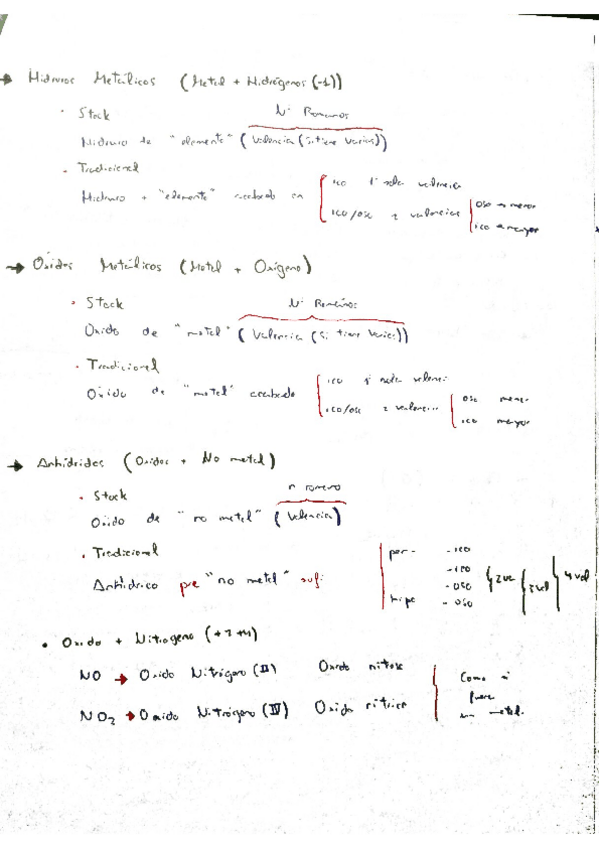 → Hidruros Metálicos (Metal + Hidrógenos (-1))
· Stock Nº Romanos
Hidruro de "elemento" (Valencia (si tiene varias))
· Tradicional
Hidruro + "elemento" acabado en
ico 1 sola valencia
ico/oso 2 valencias
oso → menor
ico → mayor
→ Óxidos Metálicos (Metal + Oxígeno)
· Stock Nº Romanos
Oxido de "metal" (Valencia (si tiene varias))
· Tradicional
Oxido de "metal" acabado
ico 1 sola valencia
ico/oso 2 valencias
oso menor
ico mayor
→ Anhídridos (Oxidos + No metal)
· Stock n romano
Oxido de "no metal" (Valencia)
· Tradicional
Anhídrico pre "no metal" suf:
per- -ico
-ico
-oso
hipo -oso
2val 3val 4val
• Oxido + Nitrogeno (+2 +4)
NO → Oxido Nitrógeno (II) Oxido nitoso
NO2 → Oxido Nitrógeno (IV) Oxido nítrico
Como si
fuera
un metal.